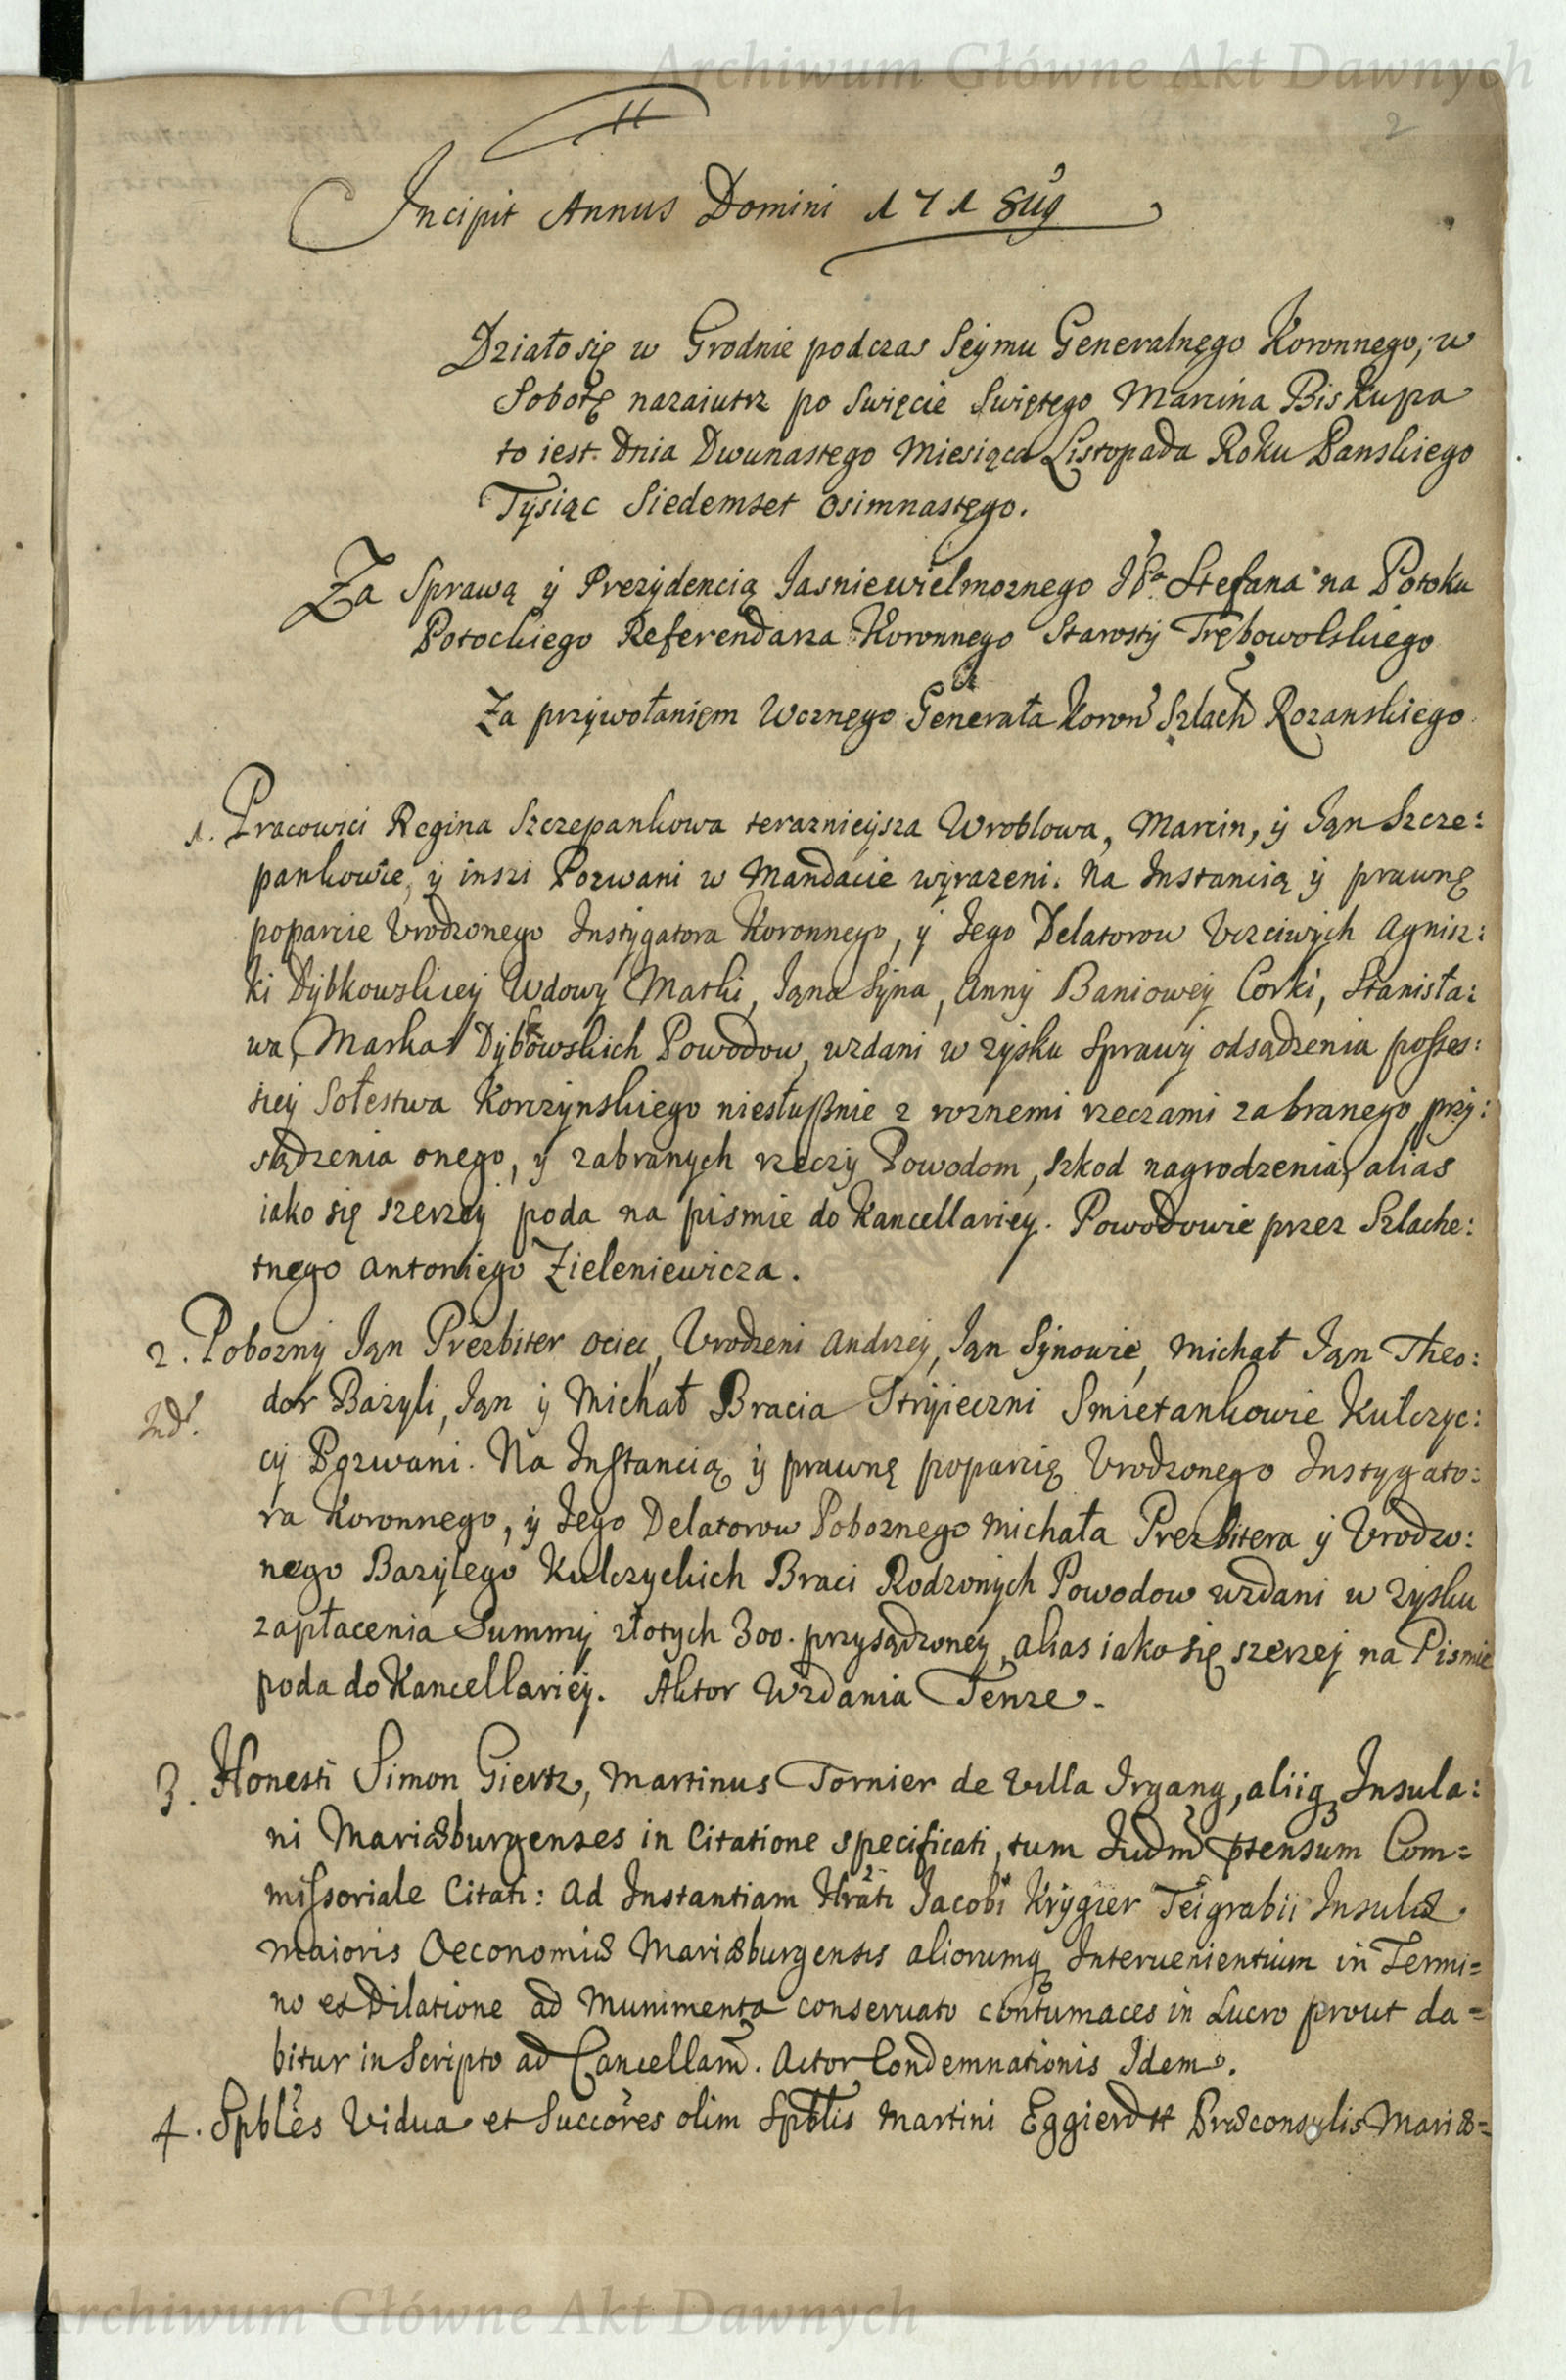 Archiwum Główne Akt Dawnych
2
Incipit Annus Domini 1718ug
Działo się w Grodnie podczas Seymu Generalnęgo Koronnego, w
Sobotę nazaiutrz po Swięcie Swiętego Marcina Biskupa
to iest Dnia Dwunastego Miesiąca Listopada Roku Panskiego
Tysiąc Siedemset osimnastęgo.
Za Sprawą y Prezydencią Jasniewielmoznego JPa Stefana na Potoku
Potockiego Referendarza Koronnego Starosty Trębowolskiego
Za przywołanięm Woznęgo Generała Koron Szlach Rozanskiego
1. Pracowici Regina Szczepankowa teraznieysza Wroblowa, Marcin, y Jąn Szcze:
pankowie, y inszi Pozwani w Mandacie wyrazeni. Na Instancią y prawnę
poparcie Urodzonego Instygatora Koronnego, y Jego Delatorow Uczciwych Agnisz:
ki Dybkowskiey Wdowy Matki, Jąna Syna, Anny Baniowey Corki, Stanisła:
wa, Marka Dybkowskich Powodow, wzdani w zysku Sprawy odsądzenia posses:
siey Sołestwa Korczynskiego niesłuſznie z roznemi rzeczami zabranego, przy:
sądzenia onego, y zabranych rzeczy Powodom, szkod nagrodzenia, alias
iako się szerzey poda na pismie do Kancellariey. Powodowie przez Szlache:
tnego Antoniego Zieleniewicza.
2. Pobozny Jąn Prezbiter ociec, Urodzeni Andrzey, Jąn Synowie, Michał Jąn Theo:
Ind.
dor Bazyli, Jąn y Michał Bracia Stryieczni Smietankowie Kulczyc:
cy Pozwani. Na Instancią y prawnę poparcię Urodzonego Instygato:
ra Koronnego, y Jego Delatorow Poboznego Michała Prezbitera y Urodzo:
nego Bazylego Kulczyckich Braci Rodzonych Powodow wzdani w zysku
zapłacenia Summy złotych 300. przysądzoney, alias iako się szerzej na Pismie
poda do Kancellariey. Aktor Wzdania Tenze.
3. Honesti Simon Giertz, Martinus Tornier de Villa Irgang, aliiq Insula:
ni Mariæburgenses in Citatione specificati, tum Judm ptensum Com=
miſsoriale Citati: Ad Instantiam Hrati Jacobi Krygier Teigrabii Insulæ
maioris Oeconomiæ Mariæburgensis aliorumq Interuenientium in Termi=
no et Dilatione ad Munimenta conseruato contumaces in Lucro prout da=
bitur in Scripto ad Cancellam. Actor Condemnationis Idem.
4. Spbles Vidua et Succores olim Spblis Martini Eggierdtt Præconsulis Mariæ=
Archiwum Główne Akt Dawnych